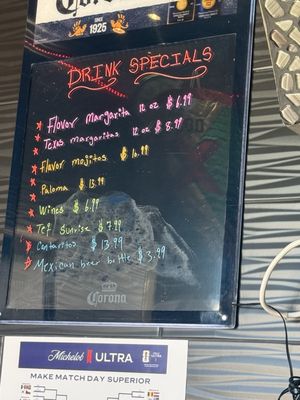 SINCE
1925
DRINK SPECIALS
Flavor margarita 12 oz $ 6.99
Texas margaritas 12 oz $ 8.99
Flavor mojitos $ 10.99
Paloma $ 13.99
Wines $ 6.99
Tef Sunrise $ 7.99
Cantaritos $ 13.99
Mexican beer bottle $ 3.99
Corona
Michelob ULTRA
MAKE MATCH DAY SUPERIOR